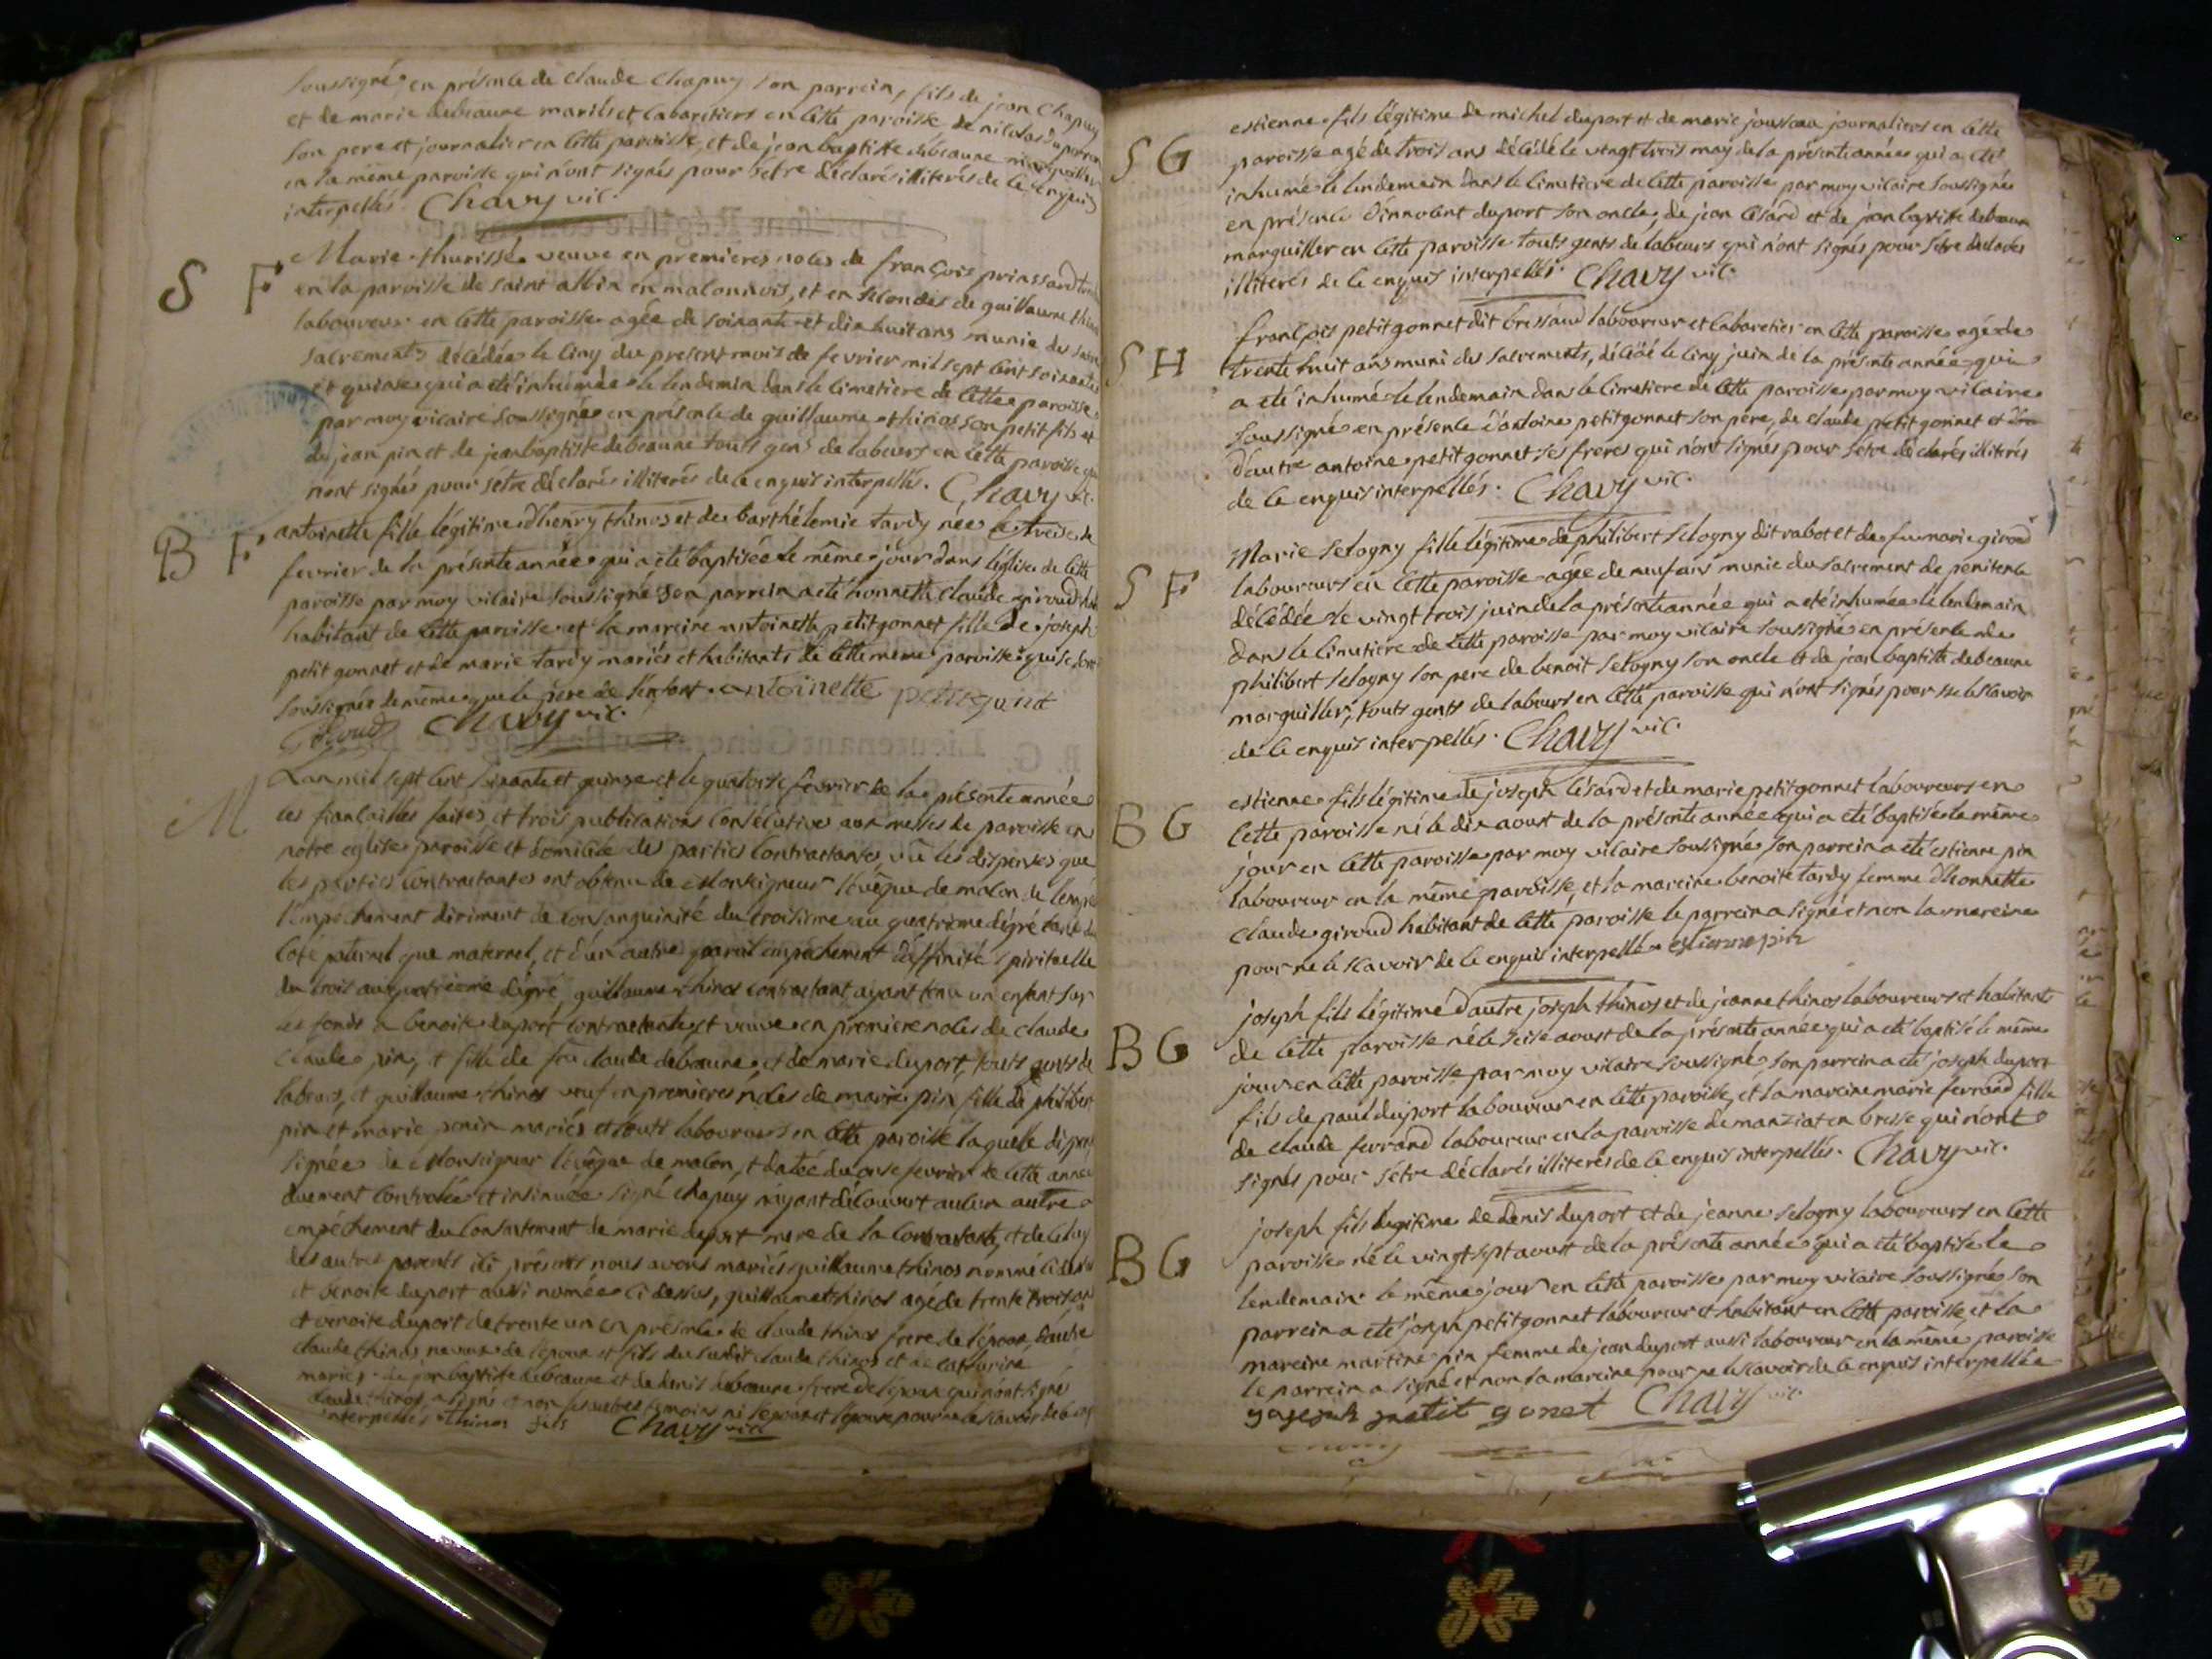 soussigné en présence de claude chapuy son parrein, fils de jean chapuy
et de marie debeaune mariés et cabaretiers en cette paroisse de nicolas duperron
son pere et journalier en cette paroisse, et de jean baptiste debeaune marguiller
en la même paroisse qui n'ont signés pour s'etre déclarés illiterés de ce enquis
interpellés. Chavy vic.
S F
Marie thurissé veuve en premieres noces de françois prinssard
en la paroisse de saint albin en maconnois, et en secondes de guillaume thinos
laboureur en cette paroisse agée de soixante et dix huit ans munie des
sacrements décédée le cinq du present mois de fevrier mil sept cent soixante
et quinze qui a eté inhumée le lendemin dans le cimetiere de cette paroisse
par moy vicaire soussigné en présence de guillaume thinos son petit fils et
de jean pin et de jean baptiste debeaune touts gens de labeurs en cette paroisse qui
n'ont signés pour s'être déclarés illiterés de ce enquis interpellés. Chavy vic.
B F
antoinette fille légitime d'henry thinos et de barthélemie tardy née le treize de
fevrier de la présente année qui a eté baptisée le même jour dans l'église de cette
paroisse par moy vicaire soussigné son parrein a eté honnette claude giroud
habitant de cette paroisse et la mareine antoinette petitgonnet fille de joseph
petit gonnet et de marie tardy mariés et habitants de cette meme paroisse qui se sont
soussignés de même que le pere de l'enfant. antoinette petitegonet
Giroud Chavy vic.
M
L'an mil sept cent soixante et quinze et le quatorse fevrier de la présente année
les fiançailles faites et trois publications consécutives aux messes de paroisse en
notre eglise paroisse et domicile des parties contractantes, vû les dispenses que
les parties contractantes ont obtenu de Monseigneur l'évêque de macon, de
l'empechement diriment de consanguinité du troisieme au quatrieme dégré tant du
coté paternel que maternel, et d'un autre pareil empechement d'affinité spirituelle
du trois au quatrieme dégré, guillaume thinos contractant ayant tenu un enfant sur
les fonds a benoite duport contractante et veuve en premiere noces de claude
claude pin, et fille de feu claude debeaune, et de marie duport, touts gents de
labeurs, et guillaume thinos veuf en premieres noces de marie pin fille de philiber
pin et marie penin mariés et touts laboureurs en cette paroisse laquelle
signée de Monseigneur l'évêque de macon, et datée du onse fevrier de cette année
duement controlée et insinuée signé chapuy n'ayant découvert aulcun autre
empéchement du consentement de marie duport mere de la contractante, et de celuy
des autres parents ici présents nous avons mariés guillaume thinos nommé ci dessus
et benoite duport aussi nomée ci dessus, guillaume thinos agé de trente trois ans
et benoite duport de trente un en présence de claude thinos frere de l'epoux, d'autre
claude thinos neveux de l'epoux et fils du susdit claude thinos et de catherine
mariés de jean baptiste debeaune et de denis debeaune frere de l'epoux qui n'ont signé
claude thinos a signé et non les autres temoins ni l'epoux et l'epouse pour ne le scavoir de ce enq
interpellés thinos fils Chavy vic.
S G
estienne fils légitime de michel duport et de marie jousseau journaliers en cette
paroisse agé de trois ans décédé le vingt trois may de la présente année qui a eté
inhumé le lendemain dans le cimetiere de cette paroisse par moy vicaire soussigné
en présence d'innocent duport son oncle, de jean césard et de jean baptiste debeaune
marguiller en cette paroisse touts gents de labeurs qui n'ont signés pour s'être déclarés
illiterés de ce enquis interpellés. Chavy vic.
S H
françois petitgonnet dit brissaud laboureur et cabaretier en cette paroisse agé de
trente huit ans muni des sacrements, décédé le cinq juin de la présente année qui
a eté inhumé le lendemain dans le cimetiere de cette paroisse par moy vicaire
soussigné en présence d'antoine petitgonnet son pere, de claude petit gonnet et
d'autre antoine petitgonnet ses freres qui n'ont signés pour s'etre déclarés illiterés
de ce enquis interpellés. Chavy vic.
S F
Marie selogny fille légitime de philibert selogny dit rabot et de feu marie giroud
laboureurs en cette paroisse agée de neuf ans munie du sacrement de penitence
décédée le vingt trois juin de la présente année qui a eté inhumée le lendemain
dans le cimetiere de cette paroisse par moy vicaire soussigné en présence de
philibert selogny son pere de benoit selogny son oncle et de jean baptiste debeaune
marguiller, touts gents de labeurs en cette paroisse qui n'ont signés pour ne le scavoir
de ce enquis interpellés. Chavy vic.
B G
estienne fils légitime de joseph césard et de marie petitgonnet laboureurs en
cette paroisse né le dix aoust de la présente année qui a eté baptisé le même
jour en cette paroisse par moy vicaire soussigné son parrein a eté estienne pin
laboureur en la même paroisse, et la mareine benoite tardy femme d'honnette
claude giroud habitant de cette paroisse le parrein a signé et non la mareine
pour ne le scavoir de ce enquis interpellée estienne pin
B G
joseph fils légitime d'autre joseph thinos et de jeanne thinos laboureurs et habitants
de cette paroisse né le seise aoust de la présente année qui a eté baptisé le même
jour en cette paroisse par moy vicaire soussigné son parrein a eté joseph duport
fils de paul duport laboureur en cette paroisse, et la mareine marie ferrand fille
de claude ferrand laboureur en la paroisse de manziat en bresse qui n'ont
signés pour s'être déclarés illiterés de ce enquis interpellés. Chavy vic.
B G
joseph fils legitime de denis duport et de jeanne selogny laboureurs en cette
paroisse né le vingt sept aoust de la présente année qui a eté baptisé le
lendemain le même jour en cette paroisse par moy vicaire soussigné son
parrein a eté joseph petitgonnet laboureur et habitant en cette paroisse, et la
mareine martine pin femme de jean duport aussi laboureur en la même paroisse
le parrein a signé et non la mareine pour ne le scavoir de ce enquis interpellée
petit gonet Chavy vic.